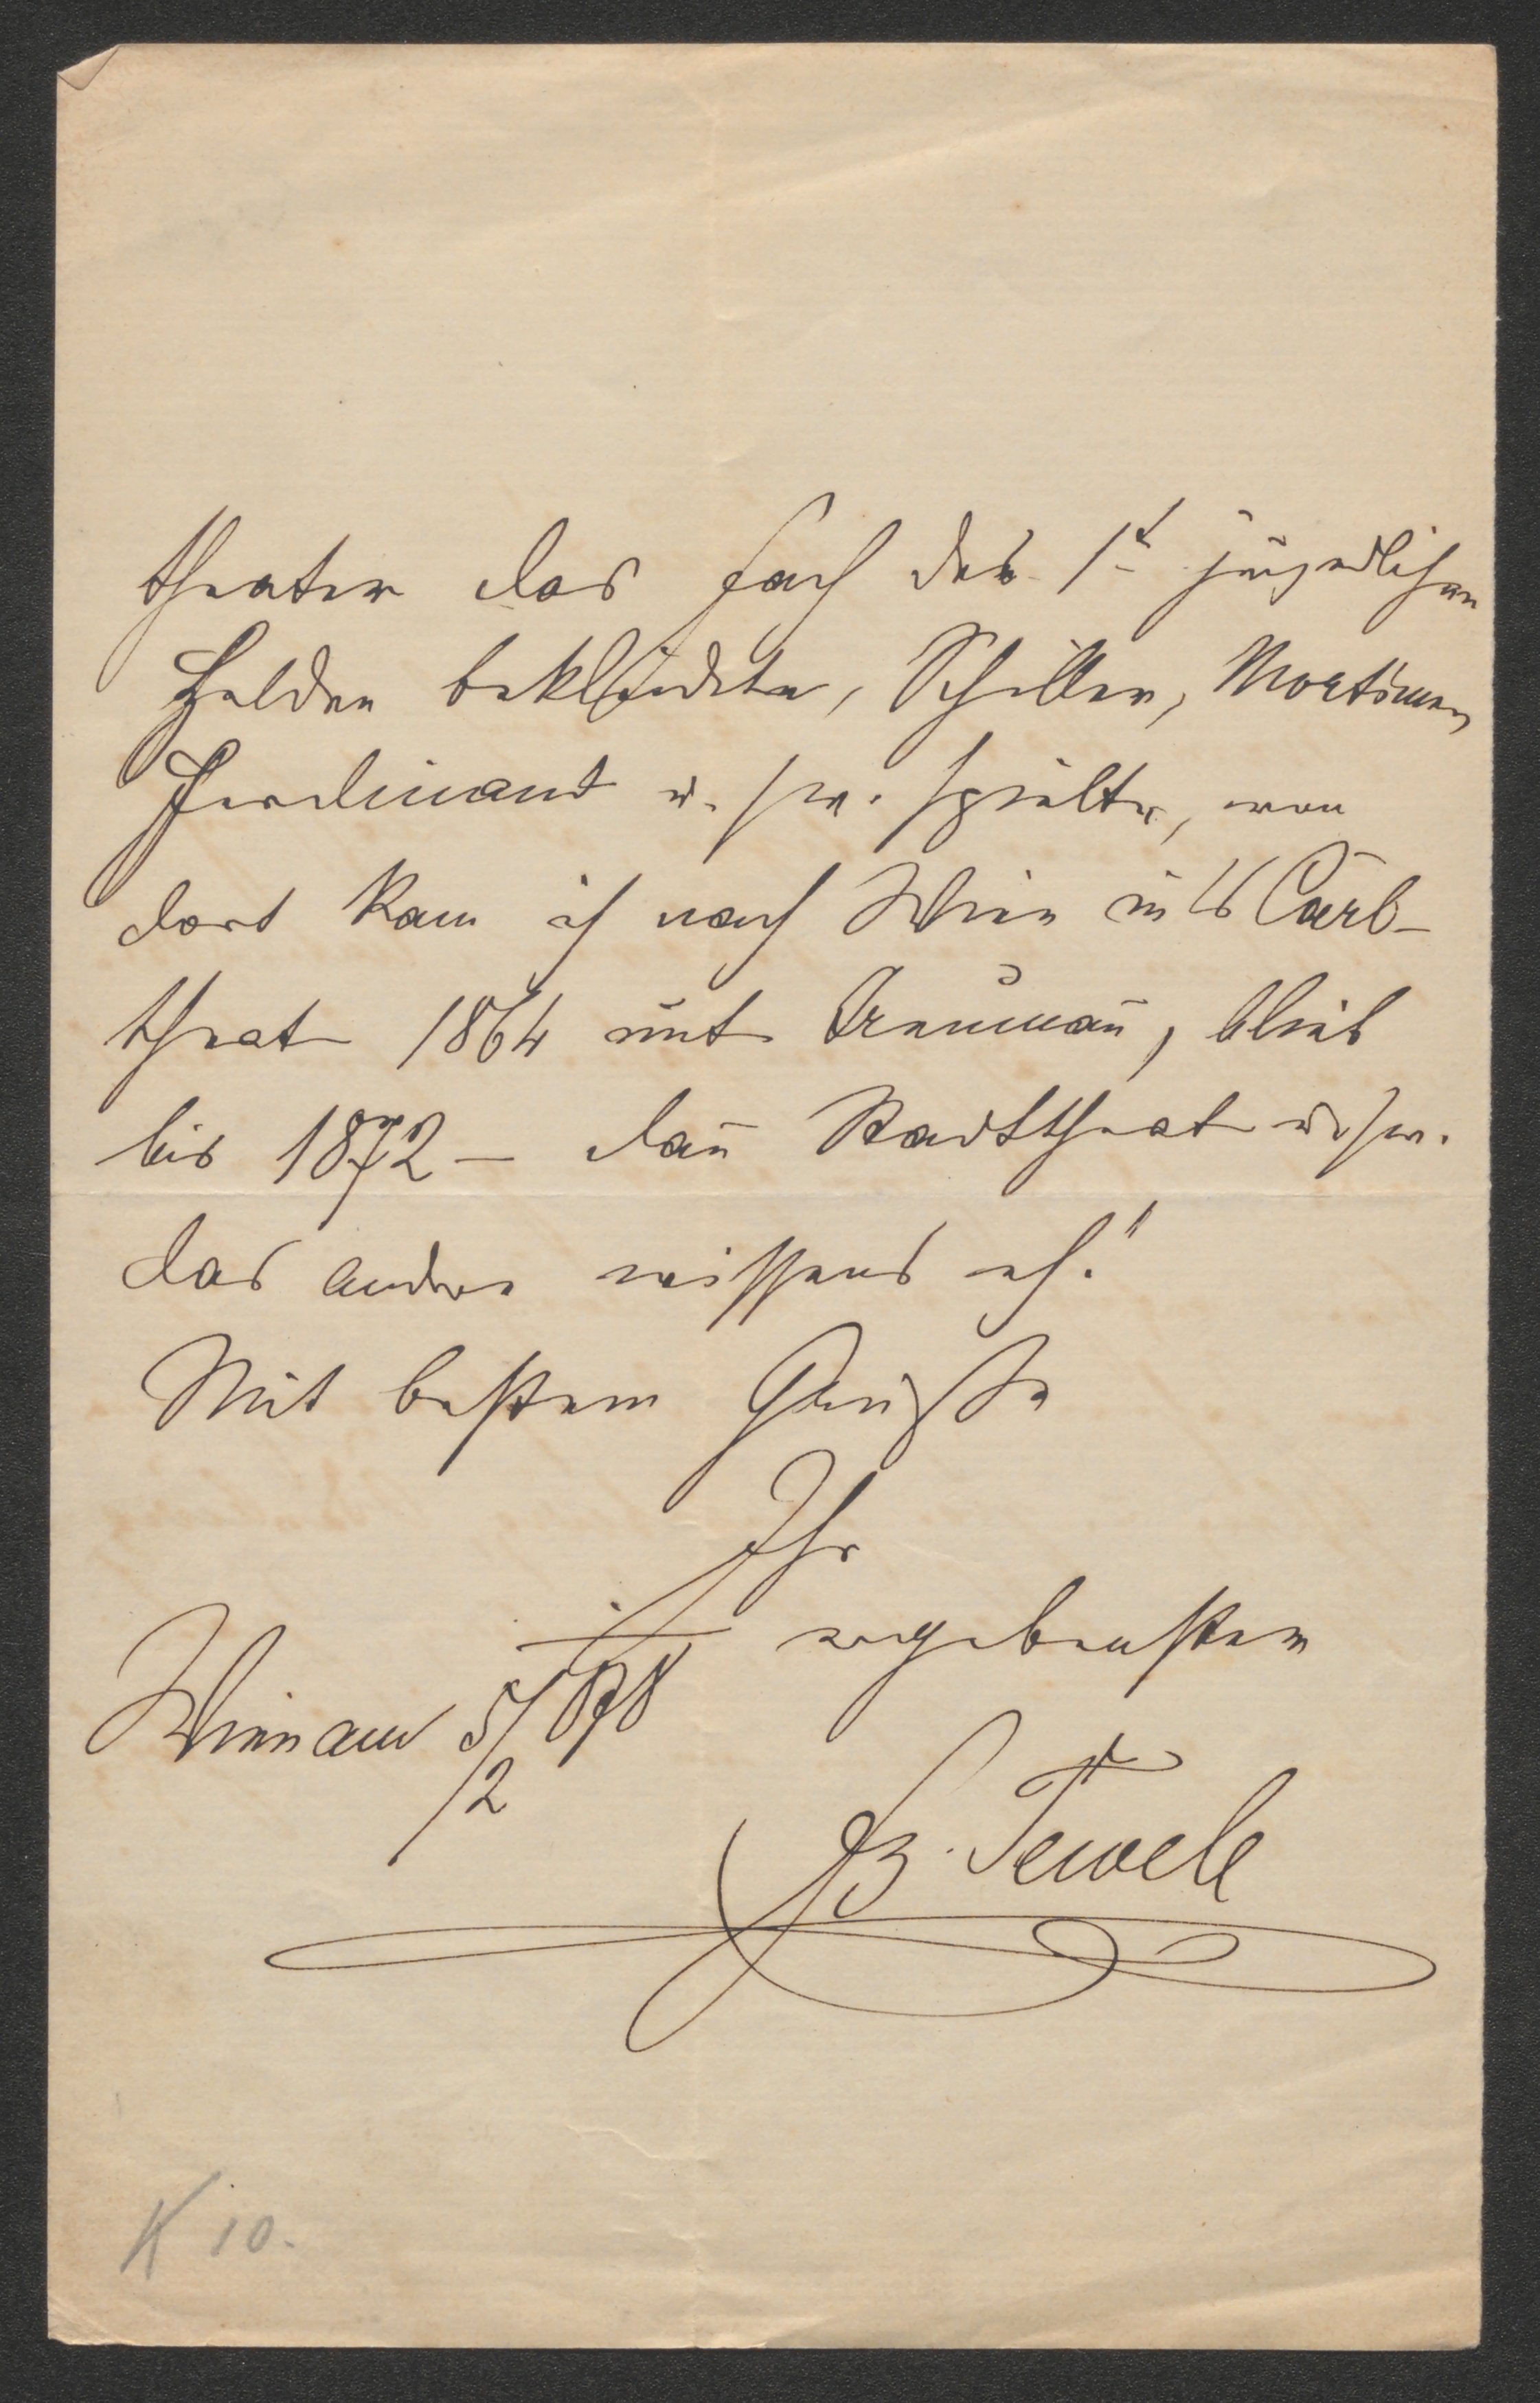 theater das Fach des 1t jugendlichen
Helden bekleidete, Schiller, Mortimer,
Ferdinand u. sw. spielte, von
dort kam ich nach Wien in's Carl-
theat 1864 mit Treumañ, blieb
bis 1872 – dañ Stadttheat u. sw.
das andre wissens eh!"
Mit bestem Gruße
Ihr
ergebenster
Wien am 5/2 878
Fz. Tewele
K 10.